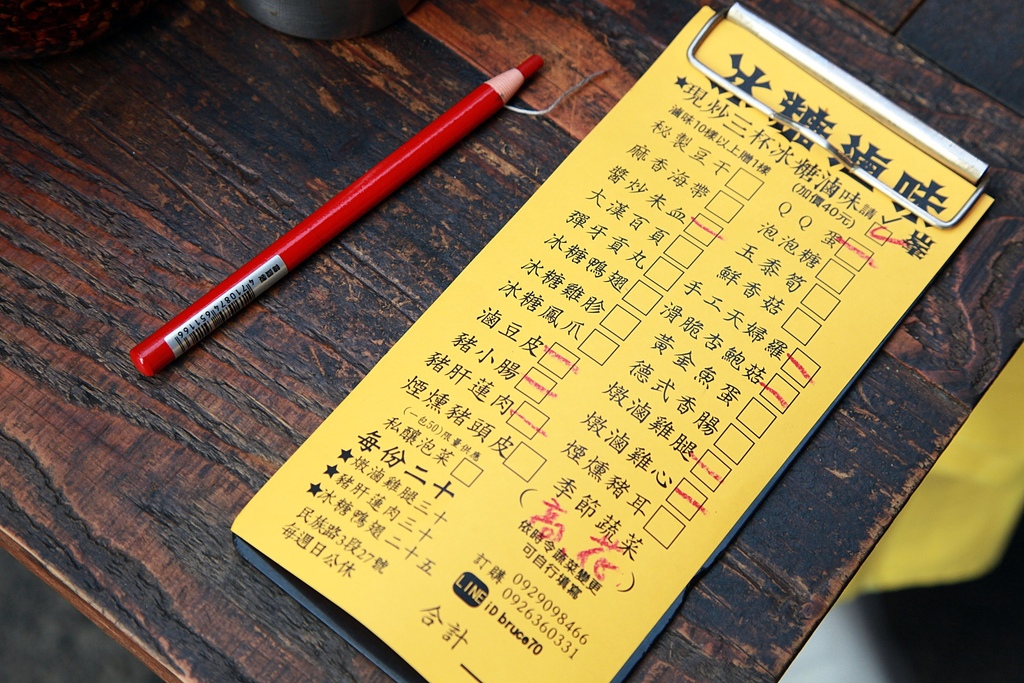 冰糖滷味
★現炒三杯冰糖滷味請✓
(加價40元)
滷味10樣以上贈1樣
秘製豆干
麻香海帶
醬炒米血
大漢百頁
彈牙貢丸
冰糖鴨翅
冰糖雞胗
冰糖鳳爪
滷豆皮
豬小腸
豬肝蓮肉
煙燻豬頭皮
(一包50)限量供應
私釀泡菜
QQ蛋
泡泡糖
玉黍筍
鮮香菇
手工天婦羅
滑脆杏鮑菇
黃金魚蛋
德式香腸
燉滷雞腿
燉滷雞心
煙燻豬耳
季節蔬菜
(高 花)
依時令蔬菜變更
可自行填寫
每份二十
★燉滷雞腿三十
★豬肝蓮肉三十
★冰糖鴨翅二十五
民族路3段27號
每週日公休
訂購 0929098466
0926360331
LINE ID bruce70
合計
4710874631166